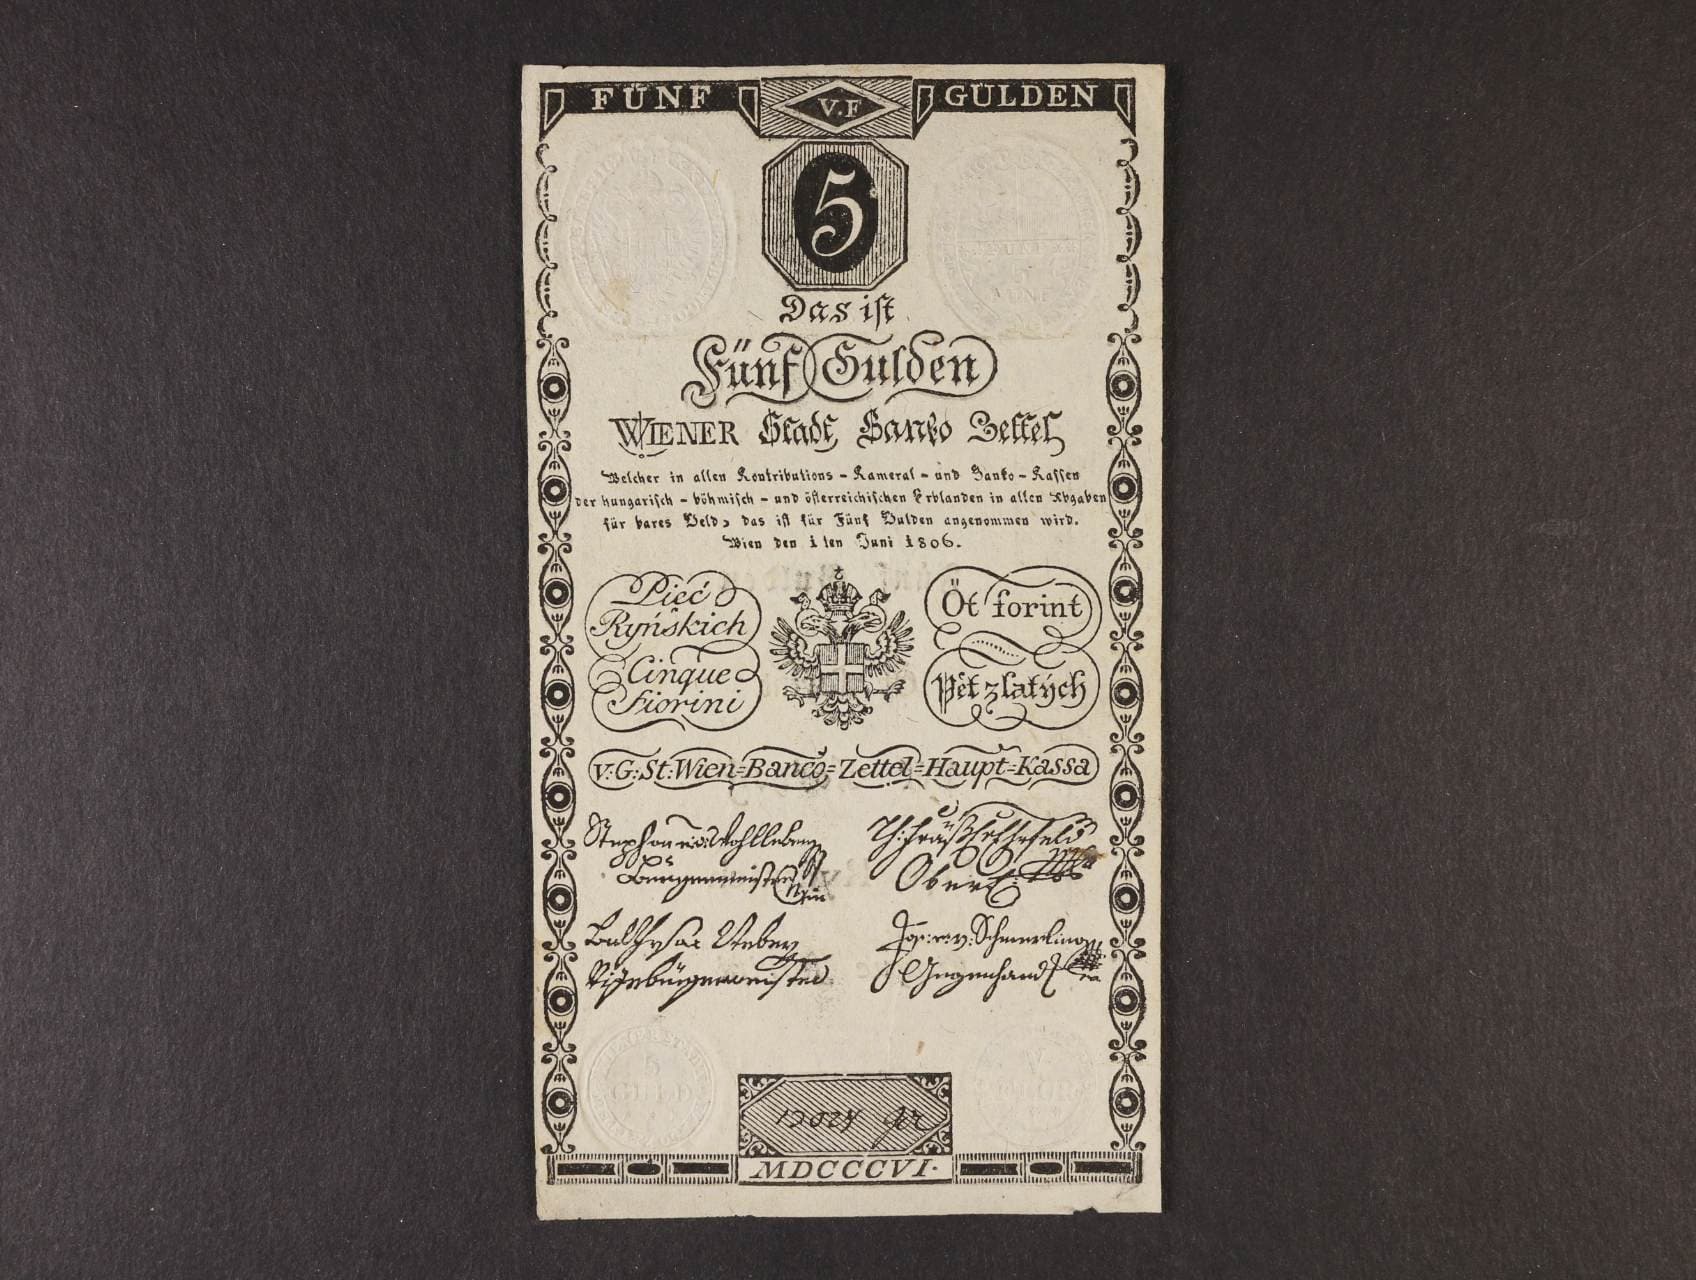 FÜNF V.F GULDEN
5
Das ist
Fünf Gulden
WIENER Stadt Banko Zettel
Welcher in allen Kontributions - Kameral - und Banko - Kassen
der hungarisch - böhmisch - und österreichischen Erblanden in allen Abgaben
für bares Geld, das ist für Fünf Gulden angenommen wird.
Wien den 1ten Juni 1806.
Pięć
Ryńskich
Cinque
Fiorini
Öt forint
Pět zlatých
V: G: St: Wien=Banco=Zettel=Haupt=Kassa
Stephan
Bürgermeister
Vizebürgermeister
Schmerling
Gegenhand
5
GULD
GULDEN
FÜNF
MDCCCVI.